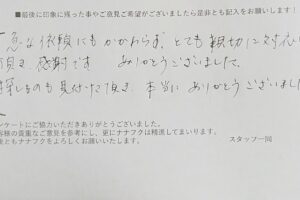 ■最後に印象に残った事やご意見ご希望がございましたら是非とも記入をお願いします!
急な依頼にもかかわらず、とても親切に対応い
頂き、感謝です ありがとうございました。
探しものも見付けて頂き、本当に ありがとうございまし
ンケートにご協力いただきありがとうございました。
客様の貴重なご意見を参考にし、更にナナフクは精進してまいります。
後ともナナフクをよろしくお願いいたします。
スタッフ一同